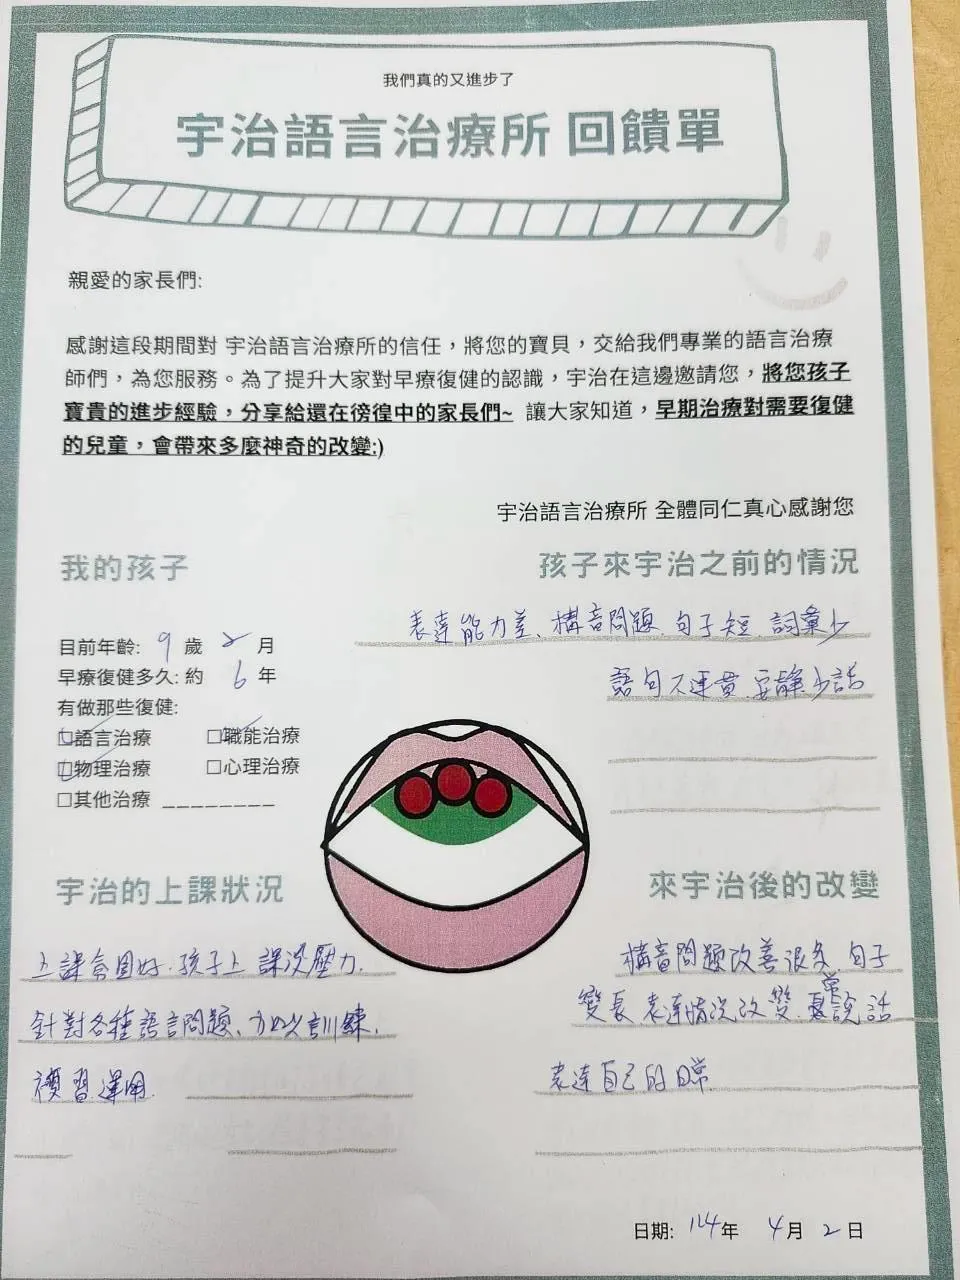 我們真的又進步了
宇治語言治療所 回饋單
親愛的家長們:
感謝這段期間對 宇治語言治療所的信任，將您的寶貝，交給我們專業的語言治療
師們，為您服務。為了提升大家對早療復健的認識，宇治在這邊邀請您，將您孩子
寶貴的進步經驗，分享給還在徬徨中的家長們~ 讓大家知道，早期治療對需要復健
的兒童，會帶來多麼神奇的改變:)
宇治語言治療所 全體同仁真心感謝您
我的孩子
目前年齡: 9 歲 2 月
早療復健多久: 約 6 年
有做那些復健:
☑語言治療 ☑職能治療
☑物理治療 □心理治療
□其他治療 _________
孩子來宇治之前的情況
表達能力差、構音問題、句子短、詞彙少
語句不連貫、安靜、少話
宇治的上課狀況
上課氛圍好、孩子上課沒壓力、
針對各種語言問題、加以訓練、
複習運用
來宇治後的改變
構音問題改善很多、句子
變長、表達情況改變、常說話
表達自己的日常
日期: 114年 4月 2日